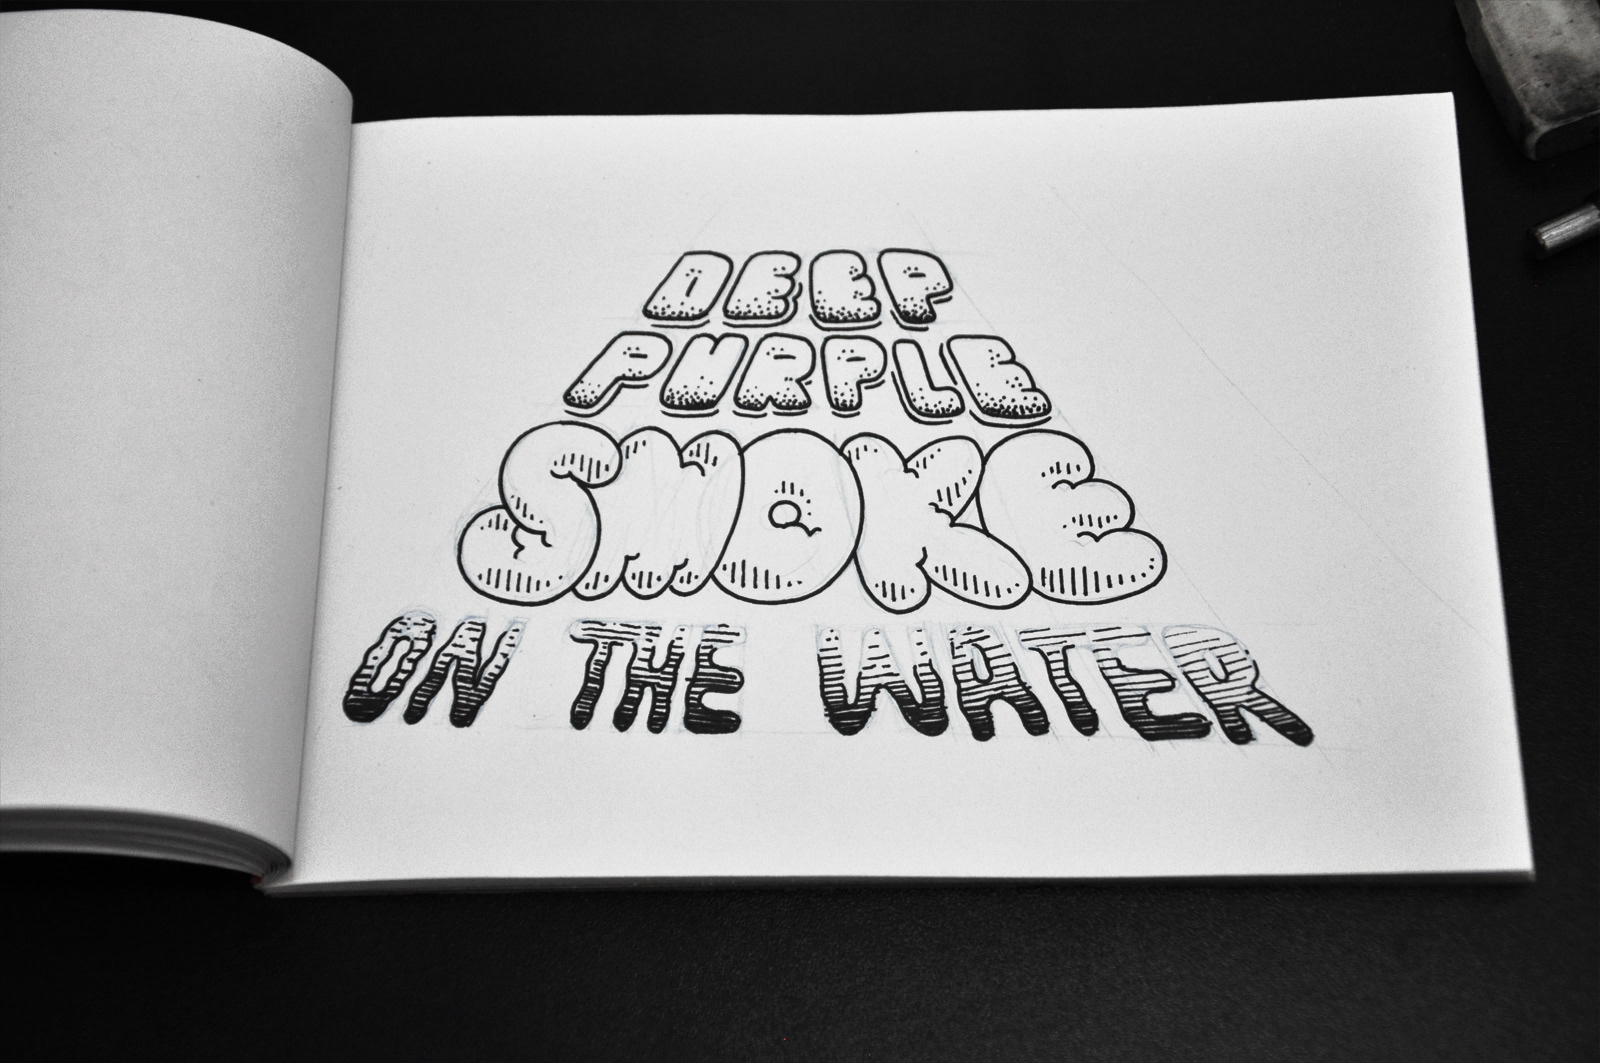 DEEP
PURPLE
SMOKE
ON THE WATER